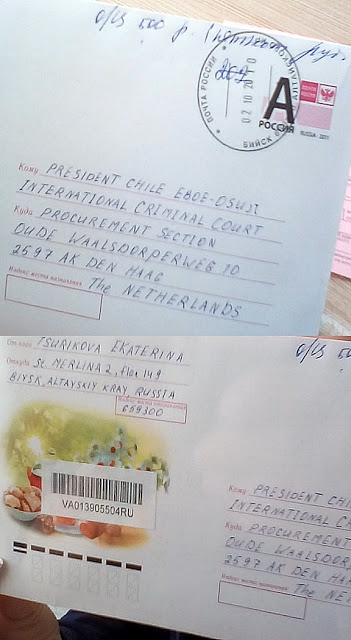 О/Ц 500 р. (пятьсот руб.
ПОЧТА РОССИИ
02 10 20 10
БИЙСК
А
РОССИЯ
RUSSIA
Кому PRESIDENT CHILE EBOE-OSUJI
INTERNATIONAL CRIMINAL COURT
Куда PROCUREMENT SECTION
OUDE WAALSDORPERWEG 10
2597 AK DEN HAAG
Индекс места назначения
The NETHERLANDS
От кого TSURIKOVA EKATERINA
Откуда St. MERLINA 2, flat 149
BIYSK, ALTAYSKIY KRAY RUSSIA
659300
О/Ц 500
VA013905504RU
Кому PRESIDENT CHIL
INTERNATIONAL C
Куда PROCUREMENT
OUDE WAALSDOR
2597 AK DEN H
Индекс места назначения
The NE